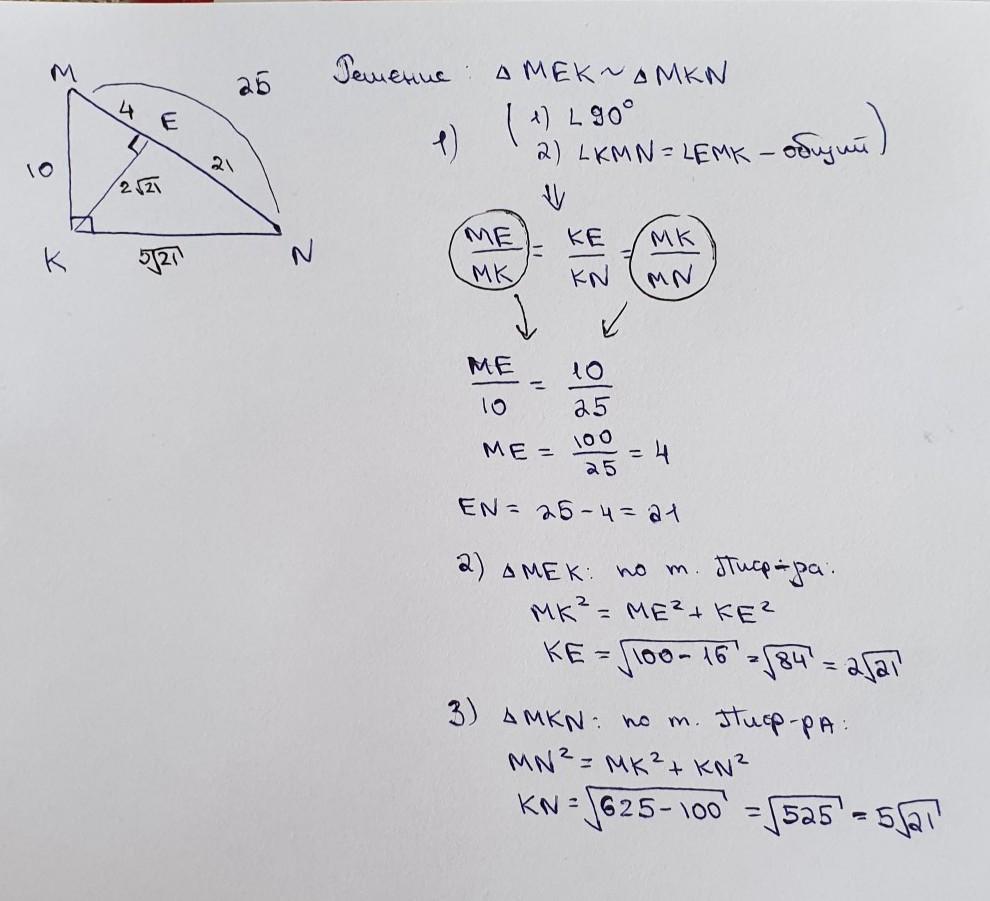 M
25
4
E
10
21
2√21
K
5√21
N
Решение : △ MEK ~ △ MKN
1) ( 1) ∟90°
2) ∟KMN = ∟EMK – общий )
⇓
ME/MK = KE/KN = MK/MN
ME/10 = 10/25
ME = 100/25 = 4
EN = 25 - 4 = 21
2) △ MEK: по т. Пиф-ра:
MK² = ME² + KE²
KE = √100 - 16 = √84 = 2√21
3) △ MKN: по т. Пиф-рА:
MN² = MK² + KN²
KN = √625 - 100 = √525 = 5√21